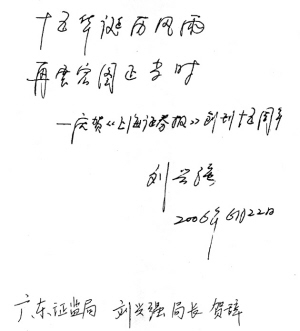 十五华诞历风雨
再展宏图正当时
——庆贺《上海证券报》创刊十五周年
刘兴强
2006年6月22日
广东证监局 刘兴强局长 贺辞